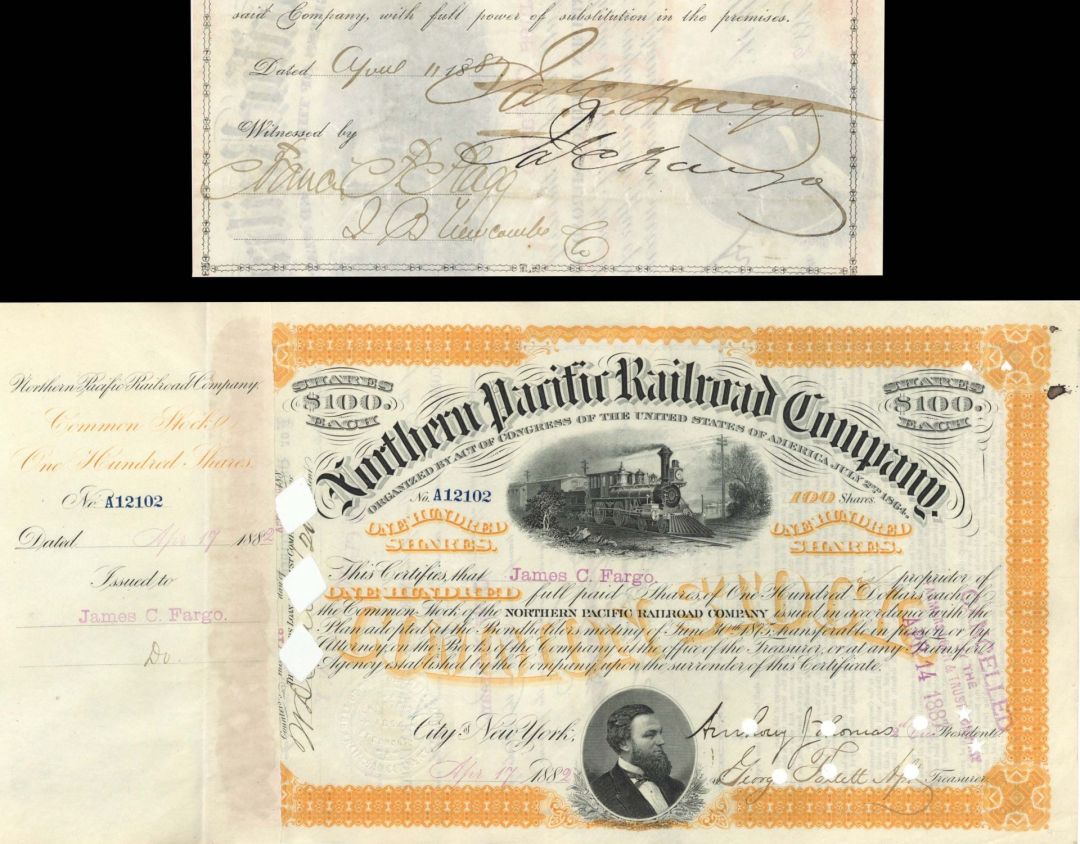 said Company, with full power of substitution in the premises.
Dated April 11 1887 Ja. C. Fargo
Witnessed by Ja C Fargo
Francis
J B Newcombe Co
Northern Pacific Railroad Company.
Common Stock
One Hundred Shares.
No. A12102
Dated Apr 17 1882
Issued to
James C. Fargo.
Do
SHARES $100. EACH
SHARES $100. EACH
Northern Pacific Railroad Company.
ORGANIZED BY ACT OF CONGRESS OF THE UNITED STATES OF AMERICA, JULY 2ND 1864.
No. A12102
100 Shares.
ONE HUNDRED SHARES.
ONE HUNDRED SHARES.
This Certifies, that James C. Fargo. is proprietor of
ONE HUNDRED full paid Shares of One Hundred Dollars each of
the Common Stock of the NORTHERN PACIFIC RAILROAD COMPANY issued in accordance with the
Plan adopted at the Bondholders meeting of June 30th 1875, transferable in person or by
Attorney, on the Books of the Company at the office of the Treasurer, or at any Transfer
Agency established by the Company, upon the surrender of this Certificate.
COMMON STOCK
CANCELLED
THE
APR 14 1887
City of New York,
Apr 17 1882
Anthony J Thomas 2d Vice President
George Treasurer